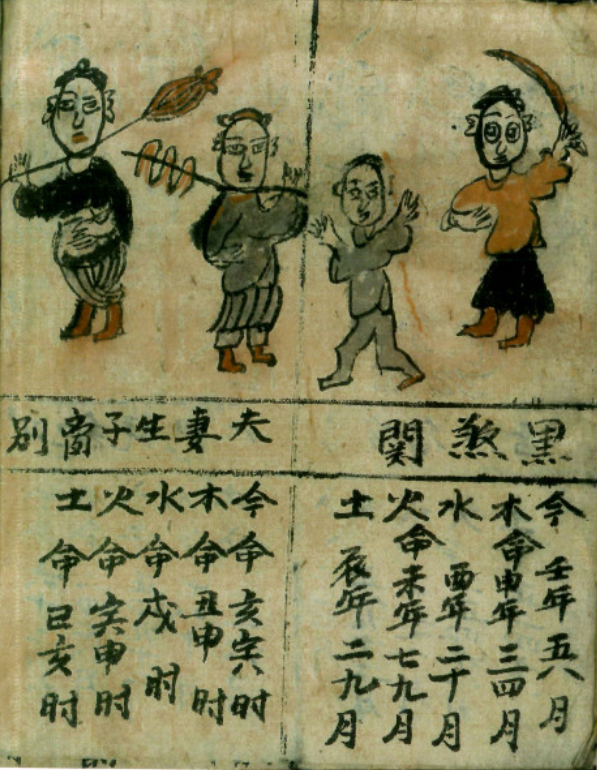 黑煞関
今 壬年五六月
木命申年三四月
水 酉年二十月
火命未年七九月
土 辰年二九月
夫妻生子啻别
今命亥寅时
木命丑申时
水命戍时
火命寅申时
土命巳亥时